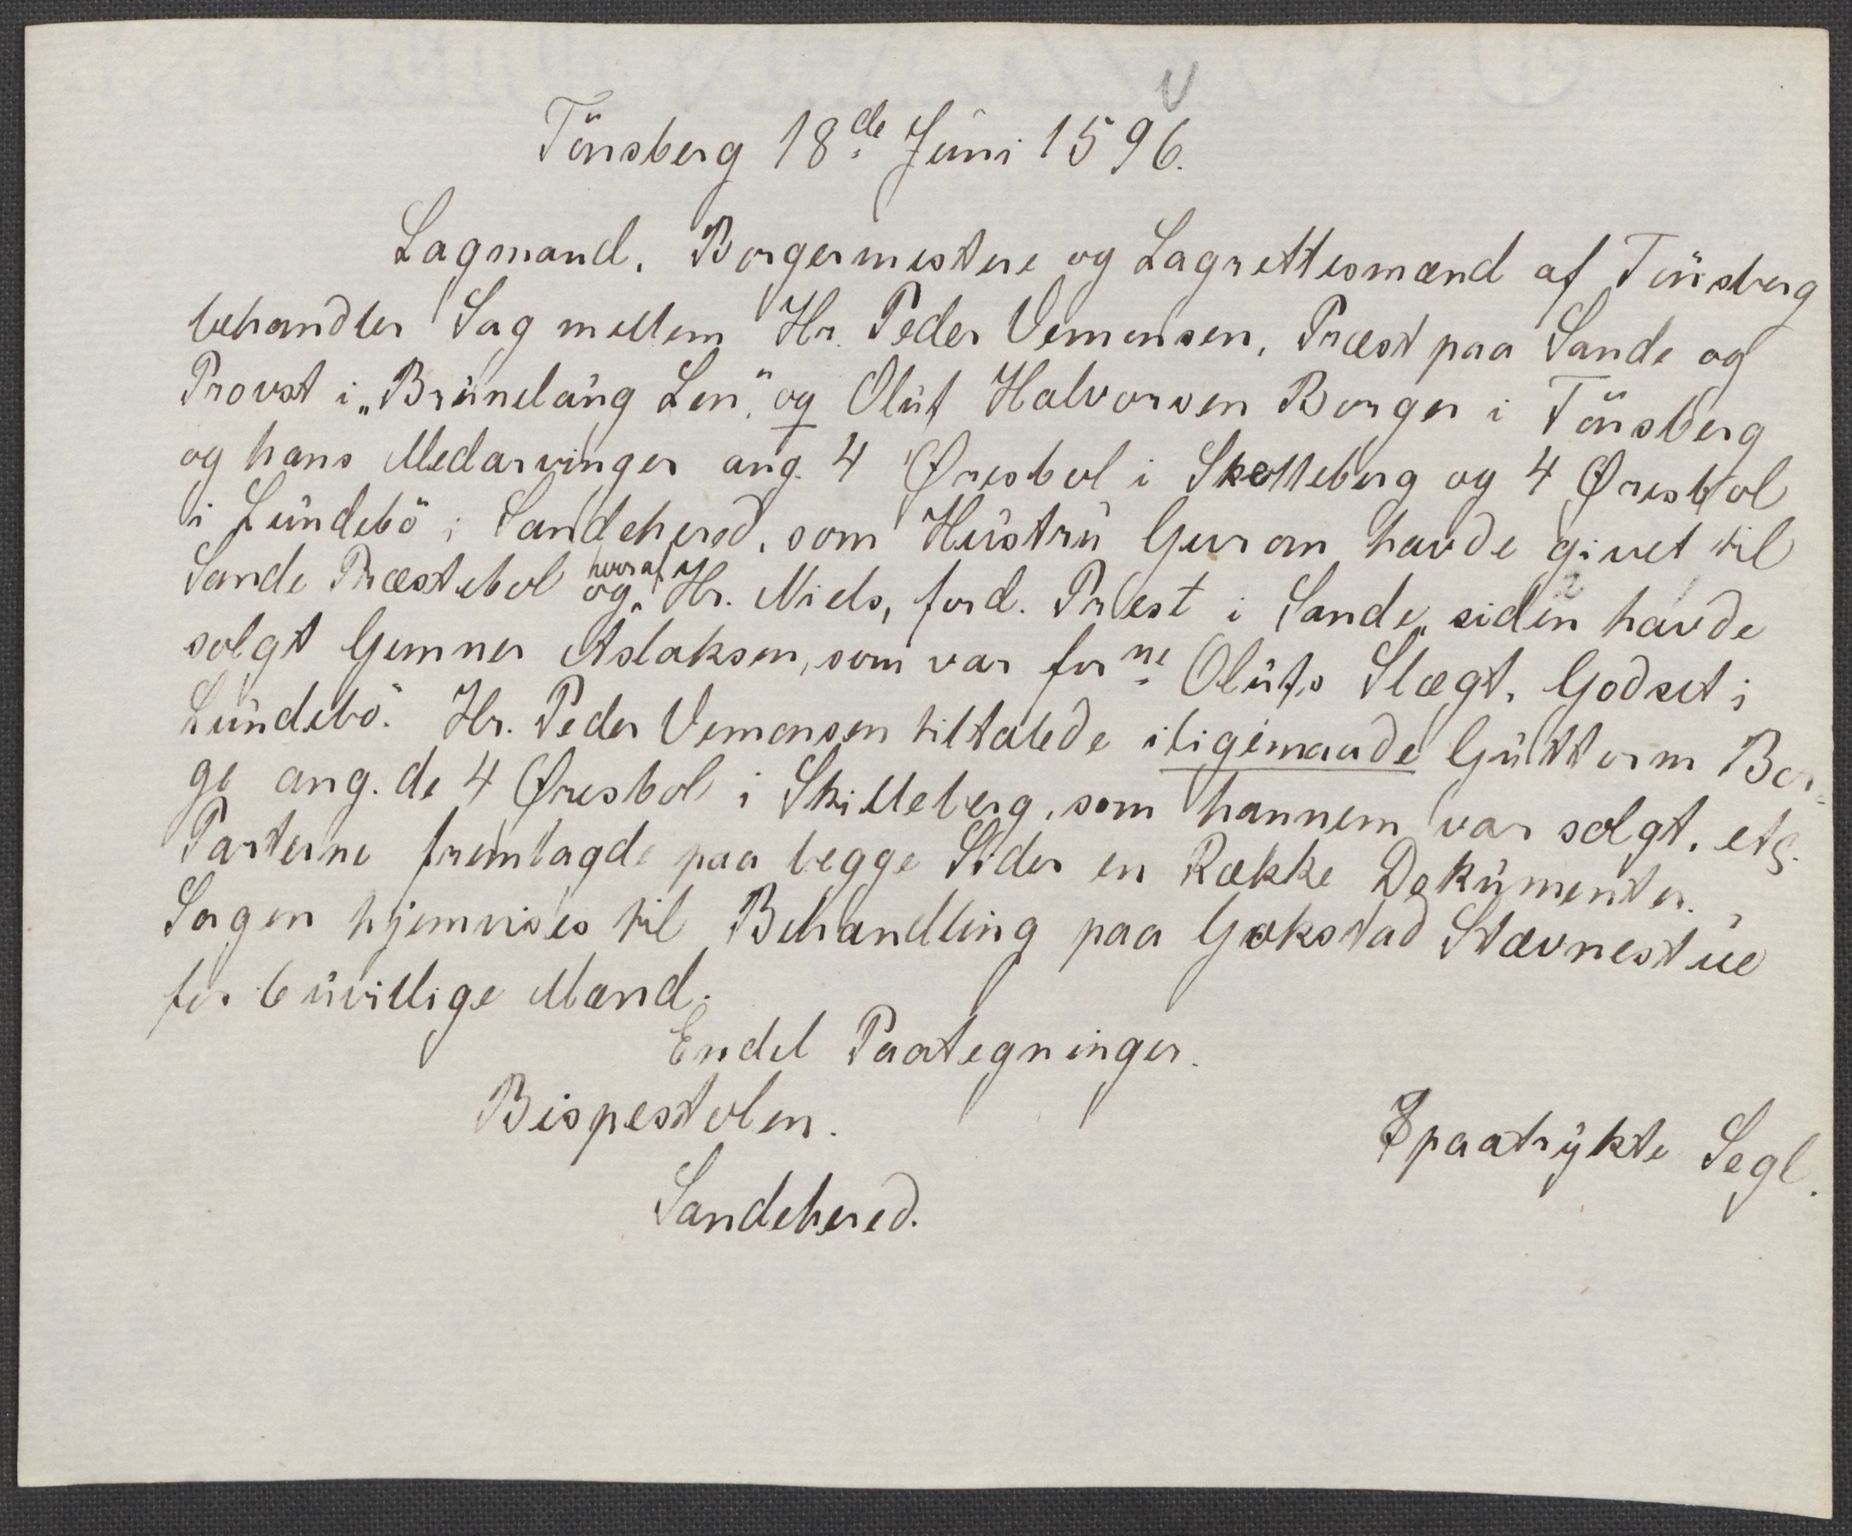 Tönsberg 18de Juni 1596.
Lagmand, Borgermestere og Lagrettesmænd af Tönsberg
behandler Sag mellem Hr. Peder Vemonsen, Præst paa Sande og
Provst i „Brunelaug Len“, og Oluf Halvorsen Borger i Tönsberg
og hans Medarvinger ang. 4 Øresbol i Skelleberg og 4 Øresbol
i Lundebö i Sandeherad, som Hustru Guron havde givet til
Sande Præstebol og hvoraf Hr. Niels, ford. Præst i Sande, siden havde
solgt Gunner Aslaksen, som var forne Olufs Slægt, Godset i
Lundebö. Hr. Peder Vemonsen tiltalede iligemaade Guttorm Bor-
ge ang. de 4 Øresbol i Skilleberg, som hannem var solgt, etc.
Parterne fremlagde paa begge Sider en Række Dokumenter.
Sagen hjemvises til Behandling paa Gokstad Stævnestue
for 6 uvillige Mænd.
Endel Paategninger.
Bispestolen.
8 paatrykte Segl.
Sandehered.